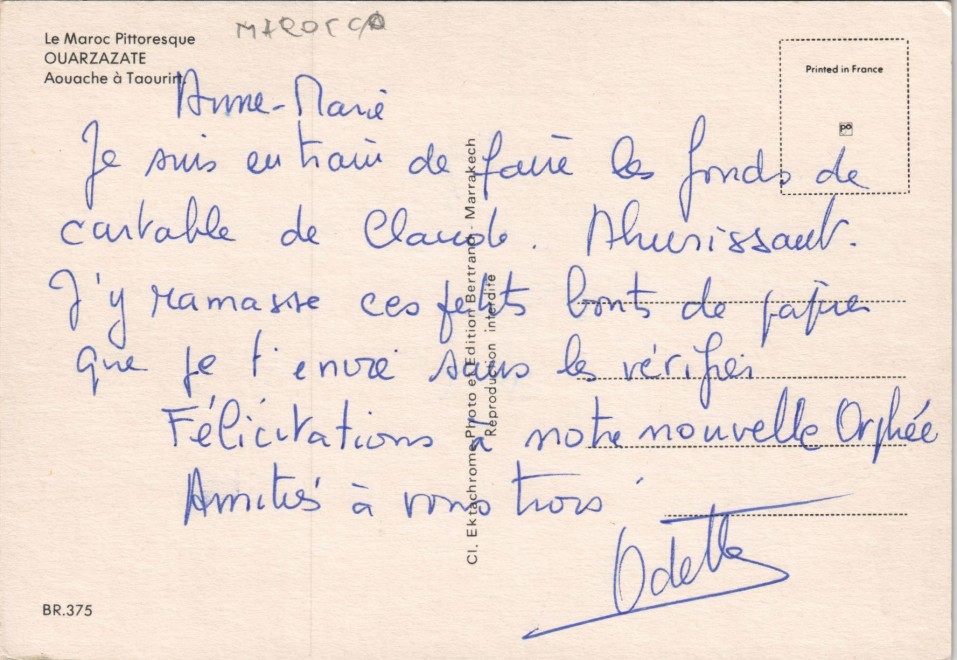 MAROCCO
Le Maroc Pittoresque
OUARZAZATE
Aouache à Taourirt.
Printed in France
Anne-Marie
Je suis en train de faire les fonds de
cartable de Claude. Ahurissant.
J'y ramasse ces petits bouts de papier
que je t'envoie sans les vérifier
Félicitations à notre nouvelle Orphée
Amitiés à vous trois
Odette
Cl. Ektachrome Photo et Edition Bertrand - Marrakech
Reproduction interdite
BR.375